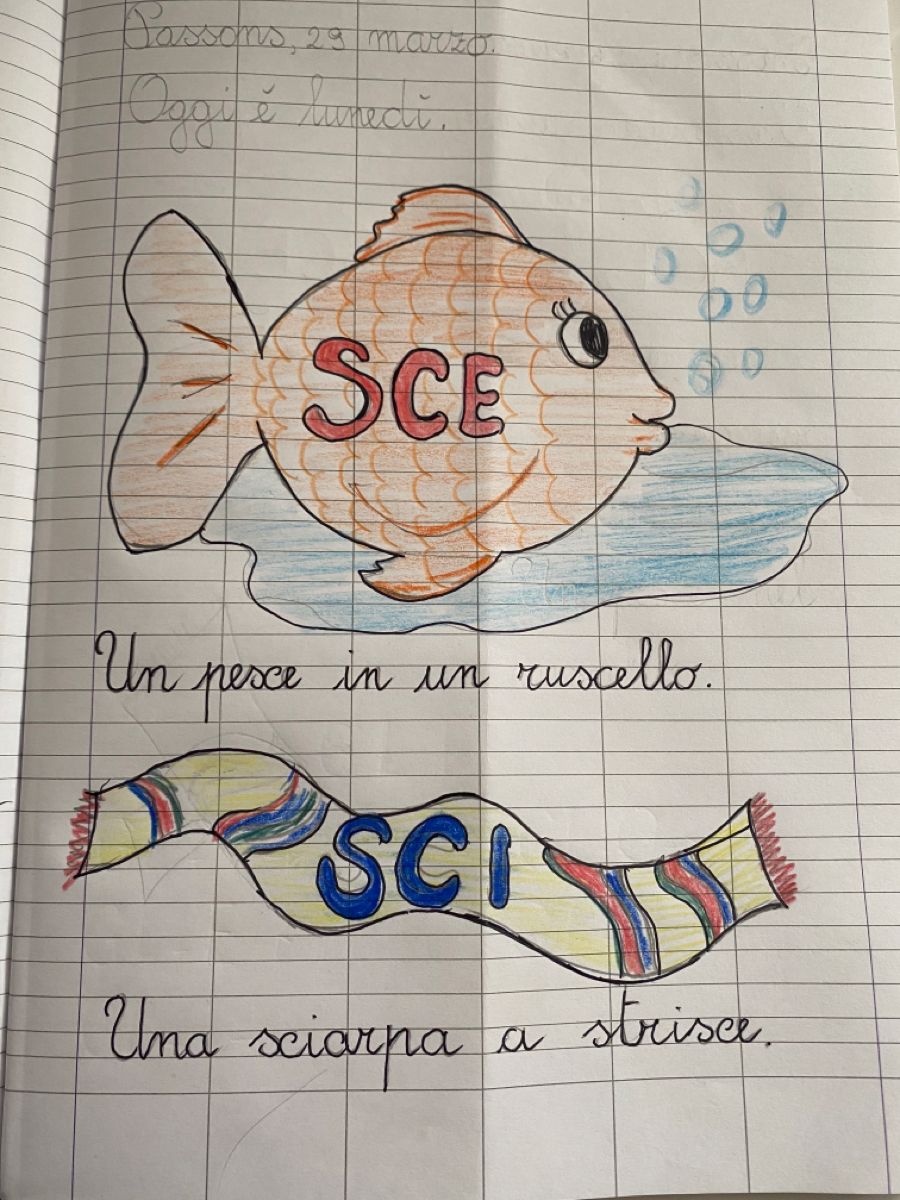 Passons, 29 marzo.
Oggi é lunedì.
SCE
Un pesce in un ruscello.
SCI
Una sciarpa a strisce.